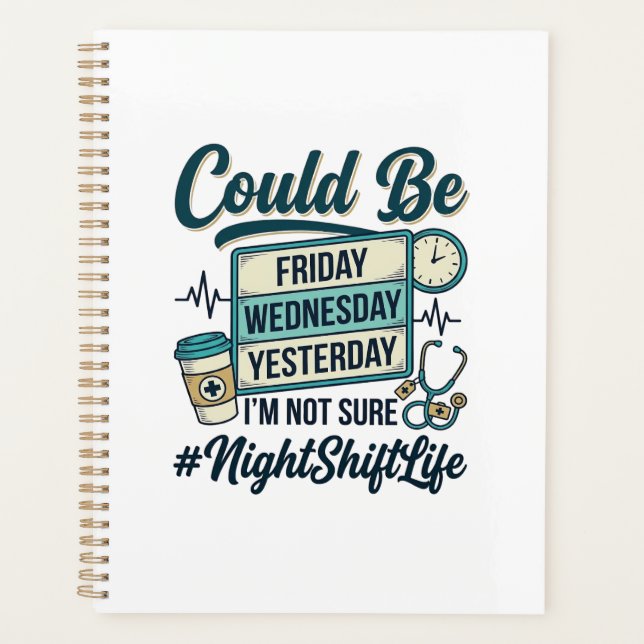 Could Be
FRIDAY
WEDNESDAY
YESTERDAY
I'M NOT SURE
#NightShiftLife